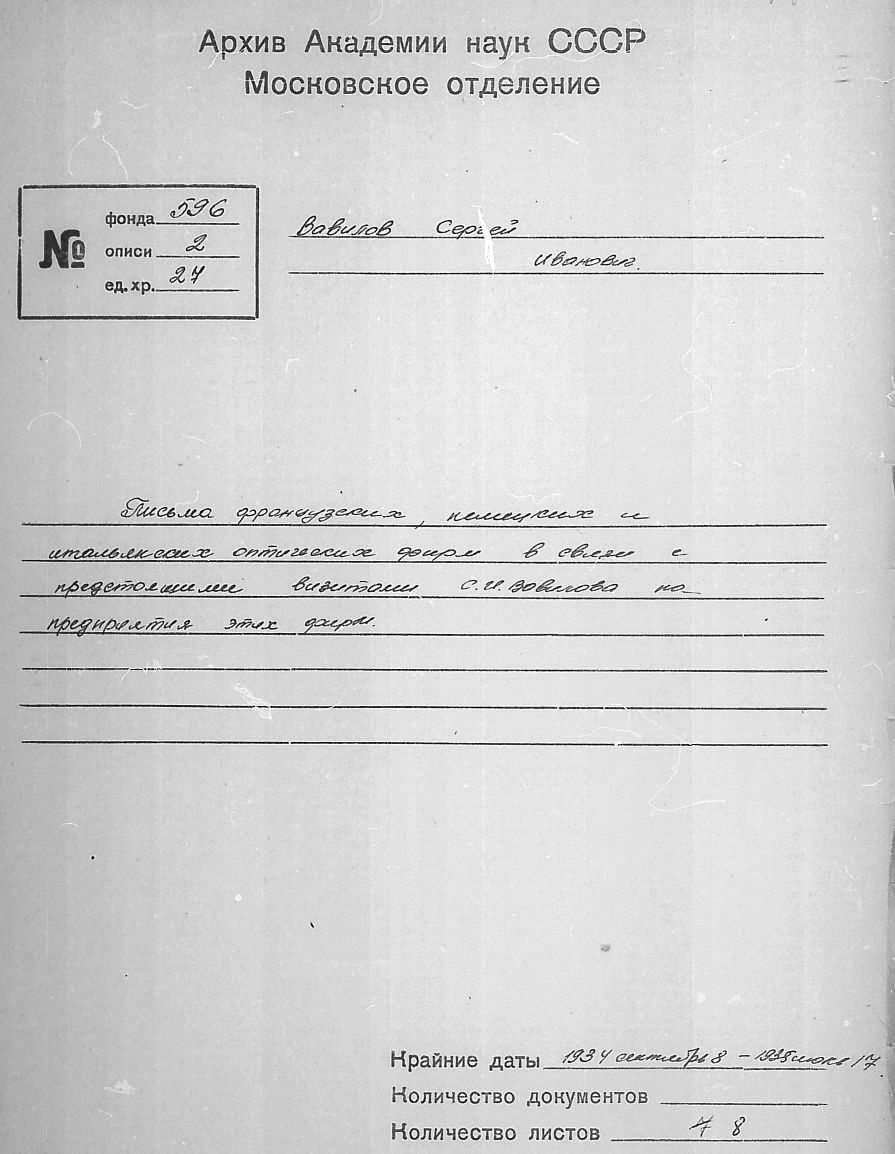 Архив Академии наук СССР
Московское отделение
№
фонда 596
описи 2
ед. хр. 27
Вавилов Сергей
Иванович.
Письма французских, немецких и
итальянских оптических фирм в связи с
предстоящими визитами С.И. Вавилова на
предприятия этих фирм.
Крайние даты 1934 сентябрь 8 – 1935 17
Количество документов
Количество листов 7 8